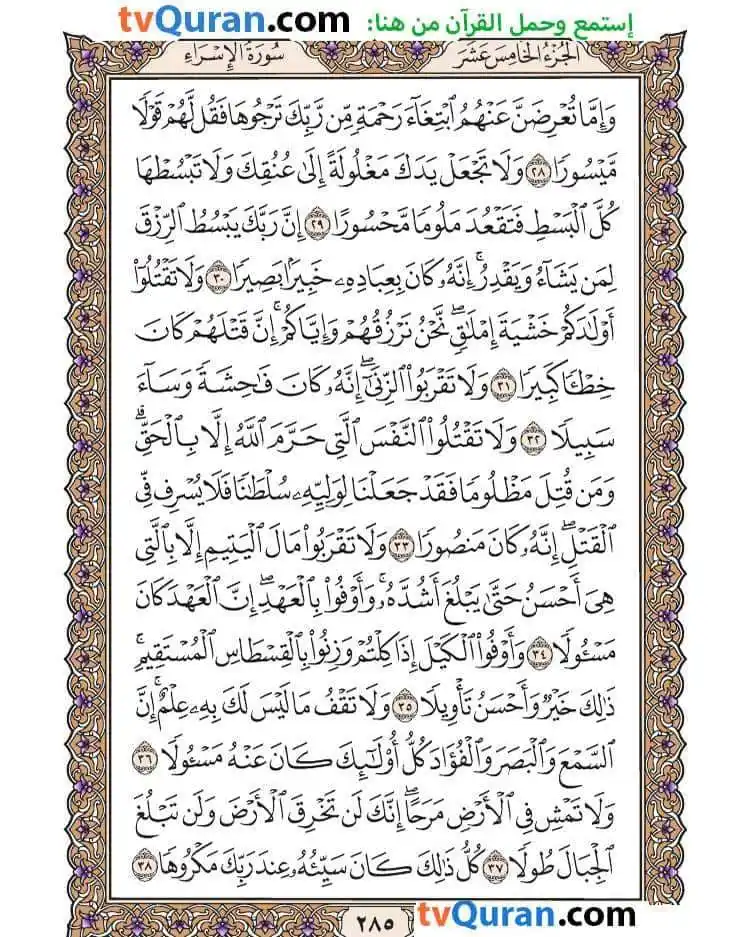 tvQuran.com إستمع وحمل القرآن من هنا:
الجُزْءُ الخَامِسَ عَشَرَ
سُورَةُ الإِسْرَاءِ
وَإِمَّا تُعْرِضَنَّ عَنْهُمُ ٱبْتِغَآءَ رَحْمَةٍ مِّن رَّبِّكَ تَرْجُوهَا فَقُل لَّهُمْ قَوْلًا
مَّيْسُورًا ٢٨ وَلَا تَجْعَلْ يَدَكَ مَغْلُولَةً إِلَىٰ عُنُقِكَ وَلَا تَبْسُطْهَا
كُلَّ ٱلْبَسْطِ فَتَقْعُدَ مَلُومًا مَّحْسُورًا ٢٩ إِنَّ رَبَّكَ يَبْسُطُ ٱلرِّزْقَ
لِمَن يَشَآءُ وَيَقْدِرُ ۚ إِنَّهُۥ كَانَ بِعِبَادِهِۦ خَبِيرًۢا بَصِيرًا ٣٠ وَلَا تَقْتُلُوٓا۟
أَوْلَـٰدَكُمْ خَشْيَةَ إِمْلَـٰقٍ ۖ نَّحْنُ نَرْزُقُهُمْ وَإِيَّاكُمْ ۚ إِنَّ قَتْلَهُمْ كَانَ
خِطْـًٔا كَبِيرًا ٣١ وَلَا تَقْرَبُوا۟ ٱلزِّنَىٰٓ ۖ إِنَّهُۥ كَانَ فَـٰحِشَةً وَسَآءَ
سَبِيلًا ٣٢ وَلَا تَقْتُلُوا۟ ٱلنَّفْسَ ٱلَّتِى حَرَّمَ ٱللَّهُ إِلَّا بِٱلْحَقِّ ۗ
وَمَن قُتِلَ مَظْلُومًا فَقَدْ جَعَلْنَا لِوَلِيِّهِۦ سُلْطَـٰنًا فَلَا يُسْرِف فِّى
ٱلْقَتْلِ ۖ إِنَّهُۥ كَانَ مَنصُورًا ٣٣ وَلَا تَقْرَبُوا۟ مَالَ ٱلْيَتِيمِ إِلَّا بِٱلَّتِى
هِىَ أَحْسَنُ حَتَّىٰ يَبْلُغَ أَشُدَّهُۥ ۚ وَأَوْفُوا۟ بِٱلْعَهْدِ ۖ إِنَّ ٱلْعَهْدَ كَانَ
مَسْـُٔولًا ٣٤ وَأَوْفُوا۟ ٱلْكَيْلَ إِذَا كِلْتُمْ وَزِنُوا۟ بِٱلْقِسْطَاسِ ٱلْمُسْتَقِيمِ ۚ
ذَٰلِكَ خَيْرٌ وَأَحْسَنُ تَأْوِيلًا ٣٥ وَلَا تَقْفُ مَا لَيْسَ لَكَ بِهِۦ عِلْمٌ ۚ إِنَّ
ٱلسَّمْعَ وَٱلْبَصَرَ وَٱلْفُؤَادَ كُلُّ أُو۟لَـٰٓئِكَ كَانَ عَنْهُ مَسْـُٔولًا ٣٦
وَلَا تَمْشِ فِى ٱلْأَرْضِ مَرَحًا ۖ إِنَّكَ لَن تَخْرِقَ ٱلْأَرْضَ وَلَن تَبْلُغَ
ٱلْجِبَالَ طُولًا ٣٧ كُلُّ ذَٰلِكَ كَانَ سَيِّئُهُۥ عِندَ رَبِّكَ مَكْرُوهًا ٣٨
٢٨٥
tvQuran.com